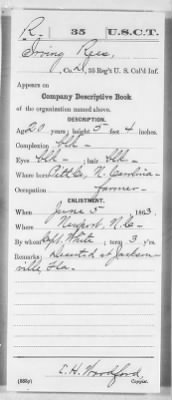 R. 35 U.S.C.T.
Irving Rees,
, Co. , 35 Reg't U. S. Col'd Inf.
Appears on
Company Descriptive Book
of the organization named above.
DESCRIPTION.
Age 20 years; height 5 feet 4 inches.
Complexion blk
Eyes blk ; hair blk
Where born Pitt Co, N. Carolina
Occupation farmer
ENLISTMENT.
When June 5, 1863.
Where Newport, N.C.
By whom Capt. White; term 3 y'rs.
Remarks: Deserted at Jackson-
ville Fla
C. H. Woodford
(383g) Copyist.